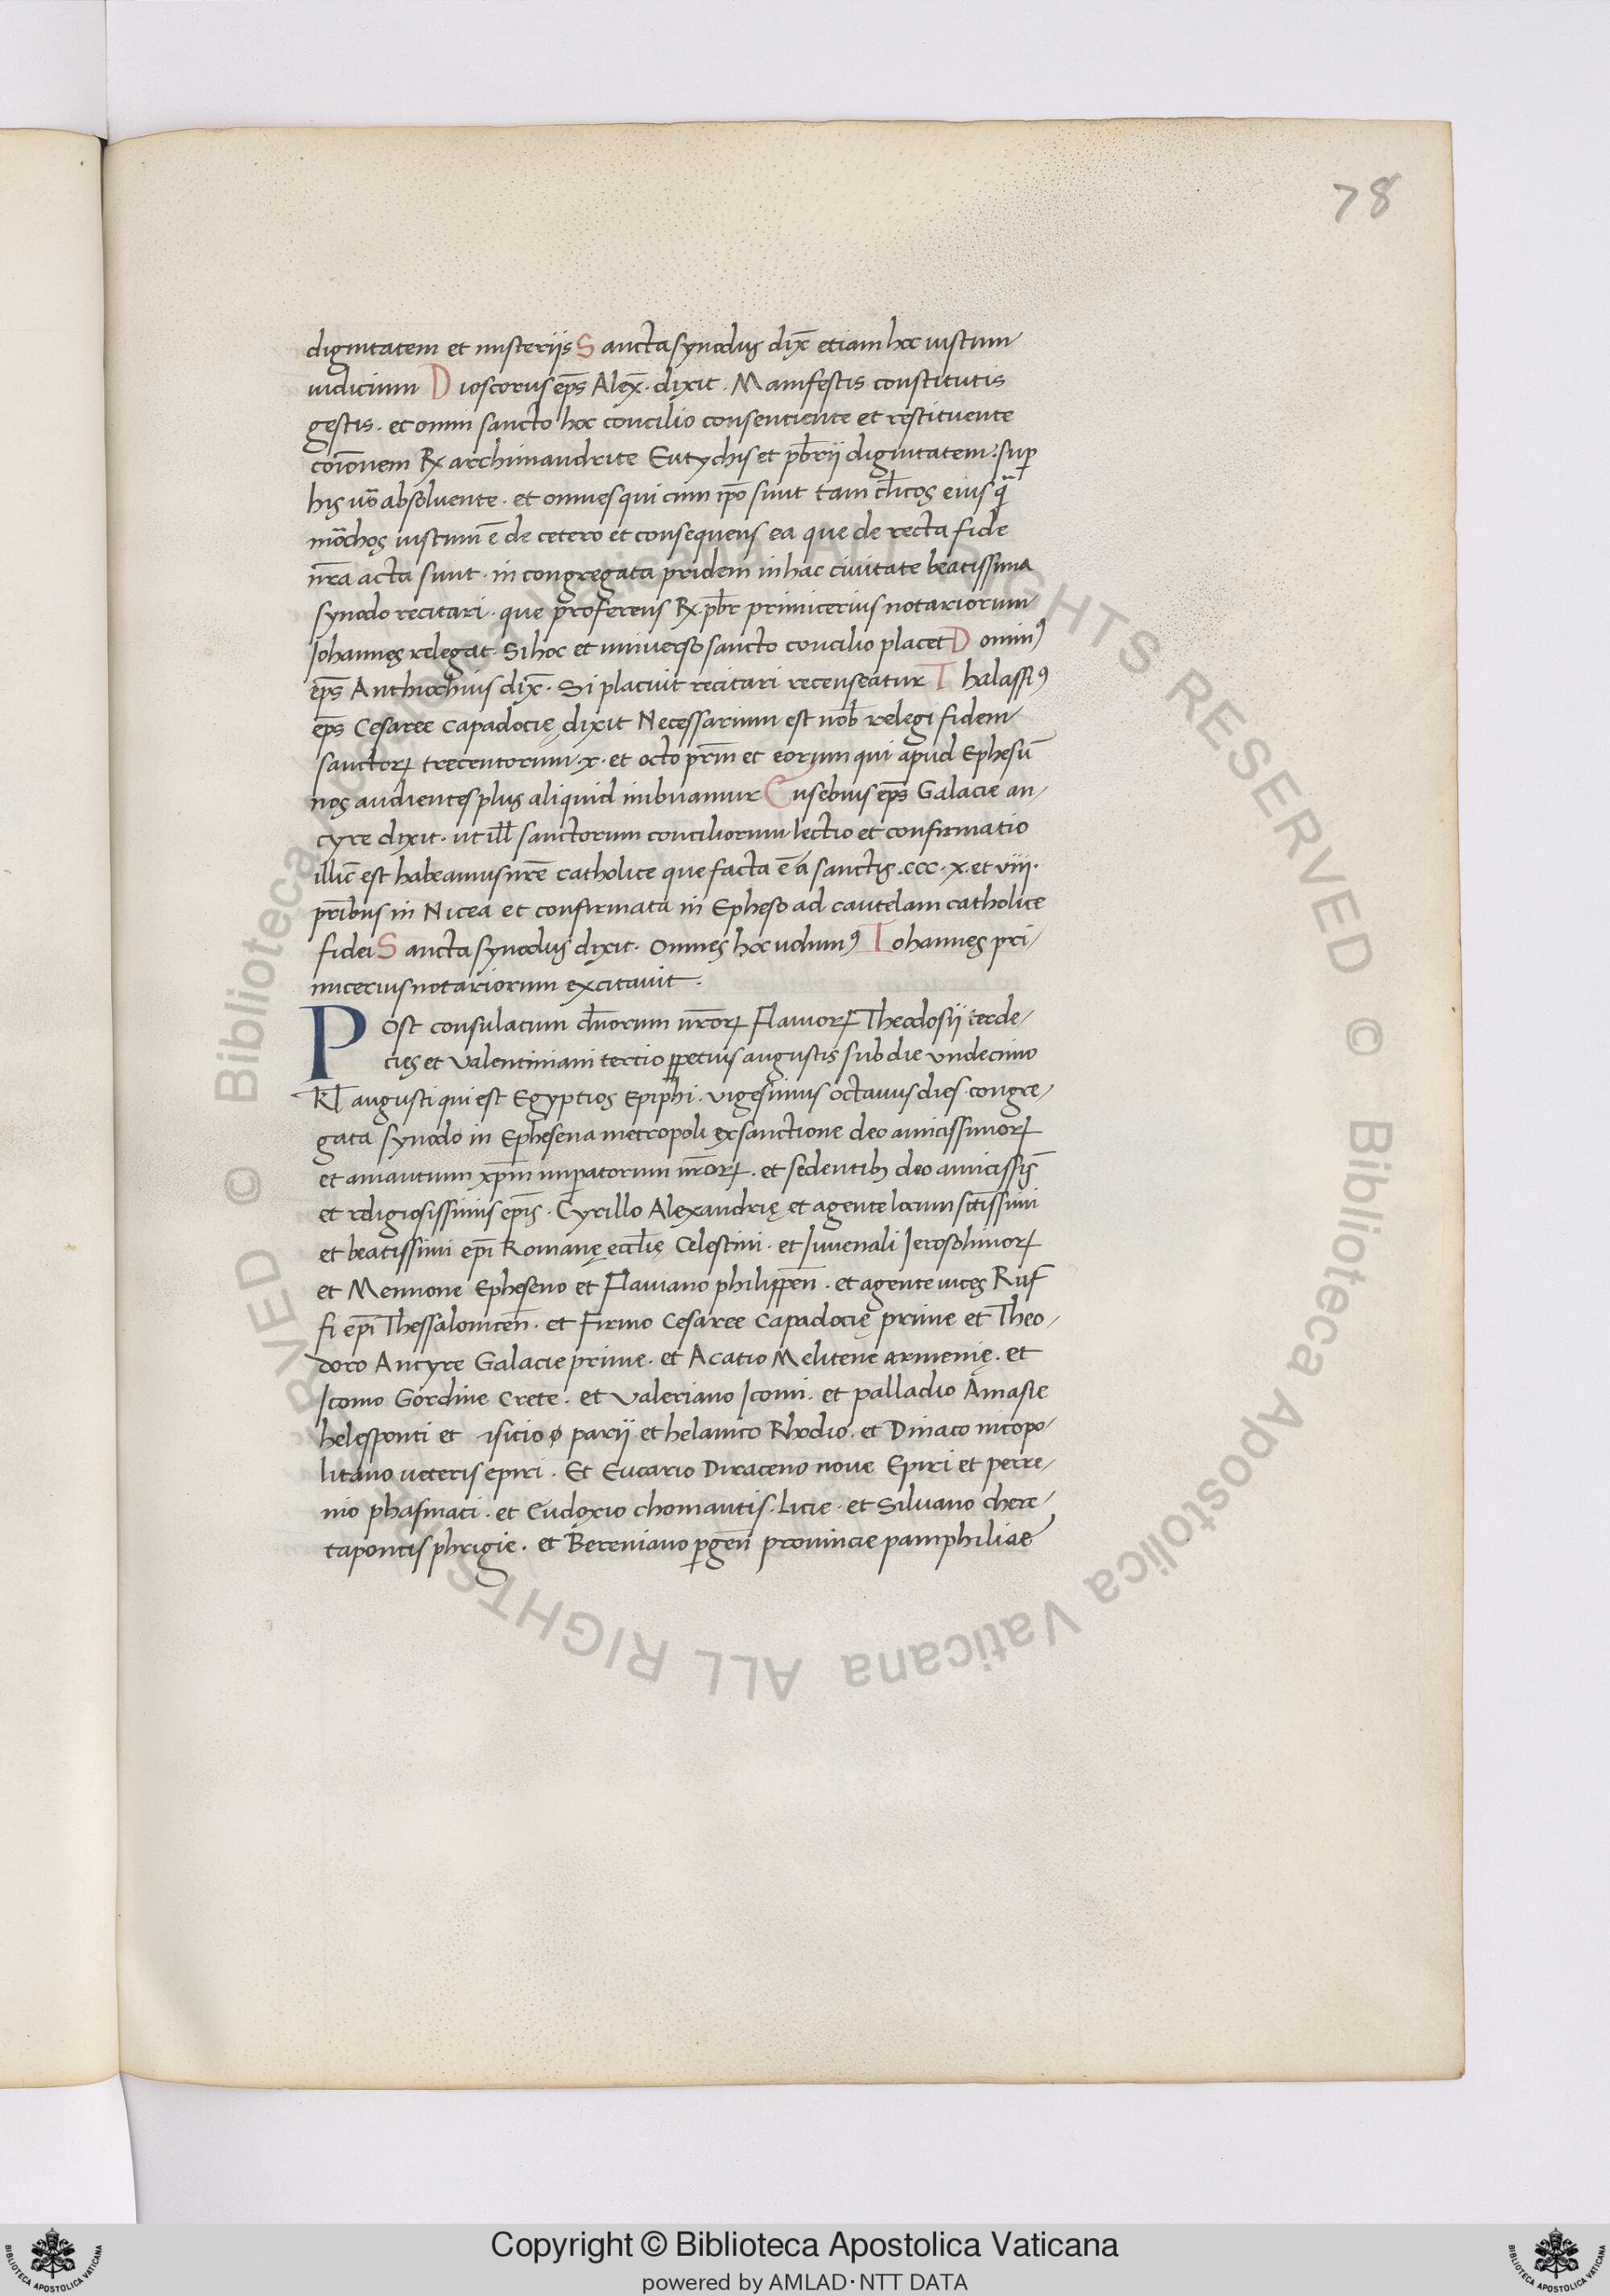 78
dignitatem et misteriis Sancta synodus dix̄ etiam hoc iustum
iudicium Dioscorus ep̄s Alex̄. dixit. Manifestis constitutis
gestis. et omni sancto hoc concilio consentiente et restituente
coīonem Rx archimandrite Eutychis et pb̄rii dignitatem. sup
his uō absoluente. et omnes qui cum ip̄o sunt tam cl̄icos eius q̄
mōchos iustum ē de cetero et consequens ea que de recta fide
nr̄a acta sunt. in congregata pridem in hac ciuitate beatissima
synodo recitari. que proferens Rx. pb̄r primicerius notariorum
Johannes relegat. Si hoc et uniuerso sancto concilio placet Domin⁹
ep̄s Anthiochius dix̄. Si placuit recitari recenseatur Thalassi⁹
ep̄s Cesaree Capadocię dixit Necessarium est nob̄ relegi fidem
sanctoꝝ trecentorum .x. et octo pr̄m et eorum qui apud Ephesū
nos audientes plus aliquid imbuamur Eusebius ep̄s Galacie an/
cyre dixit. ut ill̄ sanctorum conciliorum lectio et confirmatio
illic̄ est habeamus nr̄e catholice que facta ē a sanctis .ccc.x. et viii.
pr̄ibus in Nicea et confirmata in Epheso ad cautelam catholice
fidei Sancta synodus dixit. omnes hoc uolum⁹ Iohannes pri/
micerius notariorum excitauit.
Post consulatum dn̄orum nr̄oꝝ Flauioꝝ Theodosij terde/
cies et Valentiniani tertio ꝑpetuis augustis sub die undecimo
Kl̄ augusti qui est Egyptios Epiphi. vigesimus octauus dies. congre/
gata synodo in Ephesena metropoli ex sanctione deo amicissimoꝝ
et amantium xp̄m imꝑatorum nr̄oꝝ. et sedentibꝫ deo amicissis̄
et religiosissimis ep̄is. Cyrillo Alexandrię et agente locum sc̄tissimi
et beatissimi ep̄i Romanę eccl̄ię Celestini. et Juuenali Jerosolimoꝝ
et Mennone Epheseno et Flauiano philippen̄. et agente uices Ruf
fi ep̄i Thessalonicen̄. et Firmo Cesaree Capadocię prime et Theo/
doro Ancyre Galacie prime. et Acatio Melitene armenię. et
Iconio Gordine Crete. et Valeriano Iconii. et palladio Amasie
helesponti et isicio parij et helanico Rhodio. et Dinaco nicopo/
litano ueteris epiri. Et Eucario Diraceno noue Epiri et perre/
nio phasmati. et Eudoxio chomantis. Licie. et Siluano chere/
tapontis phrigie. et Bereniano ꝑgen̄ prouincie pamphiliae
© Biblioteca Apostolica Vaticana ALL RIGHTS RESERVED © Biblioteca Apostolica Vaticana ALL RIGHTS RESERVED
Copyright © Biblioteca Apostolica Vaticana
powered by AMLAD·NTT DATA
BIBLIOTECA APOSTOLICA VATICANA
BIBLIOTECA APOSTOLICA VATICANA